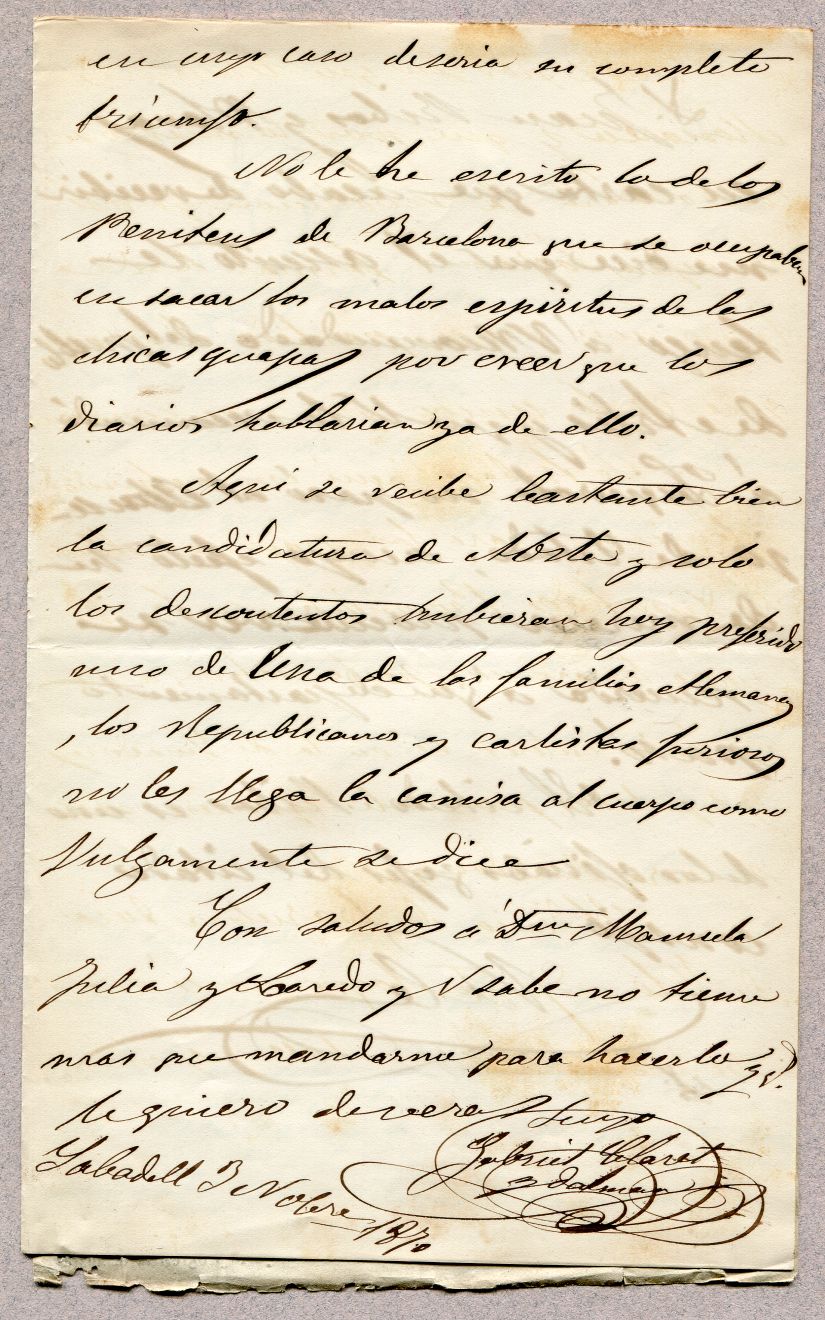 en cuyo caso deseria su complete
triumfo.
No le he escrito lo de los
Peniteus de Barcelona que se ocupaban
en sacar los malos espiritus de las
chicas guapas por creer que los
diarios hablarian ya de ello.
Aqui se recibe bastante bien
la candidatura de Aoste y solo
los descontentos hubieran hoy preferido
uno de Una de las familias Alemanas
, los Republicanos y carlistas furiosos
no les llega la camisa al cuerpo como
vulgamente se dice
Con saludos á Dña Manuela
Julia y Laredo y V sabe no tiene
mas que mandarme para hacerlo y
le quiero deveras Suyo
Gabriel Claret
y Dalmau
Sabadell 3 Nobre 1870